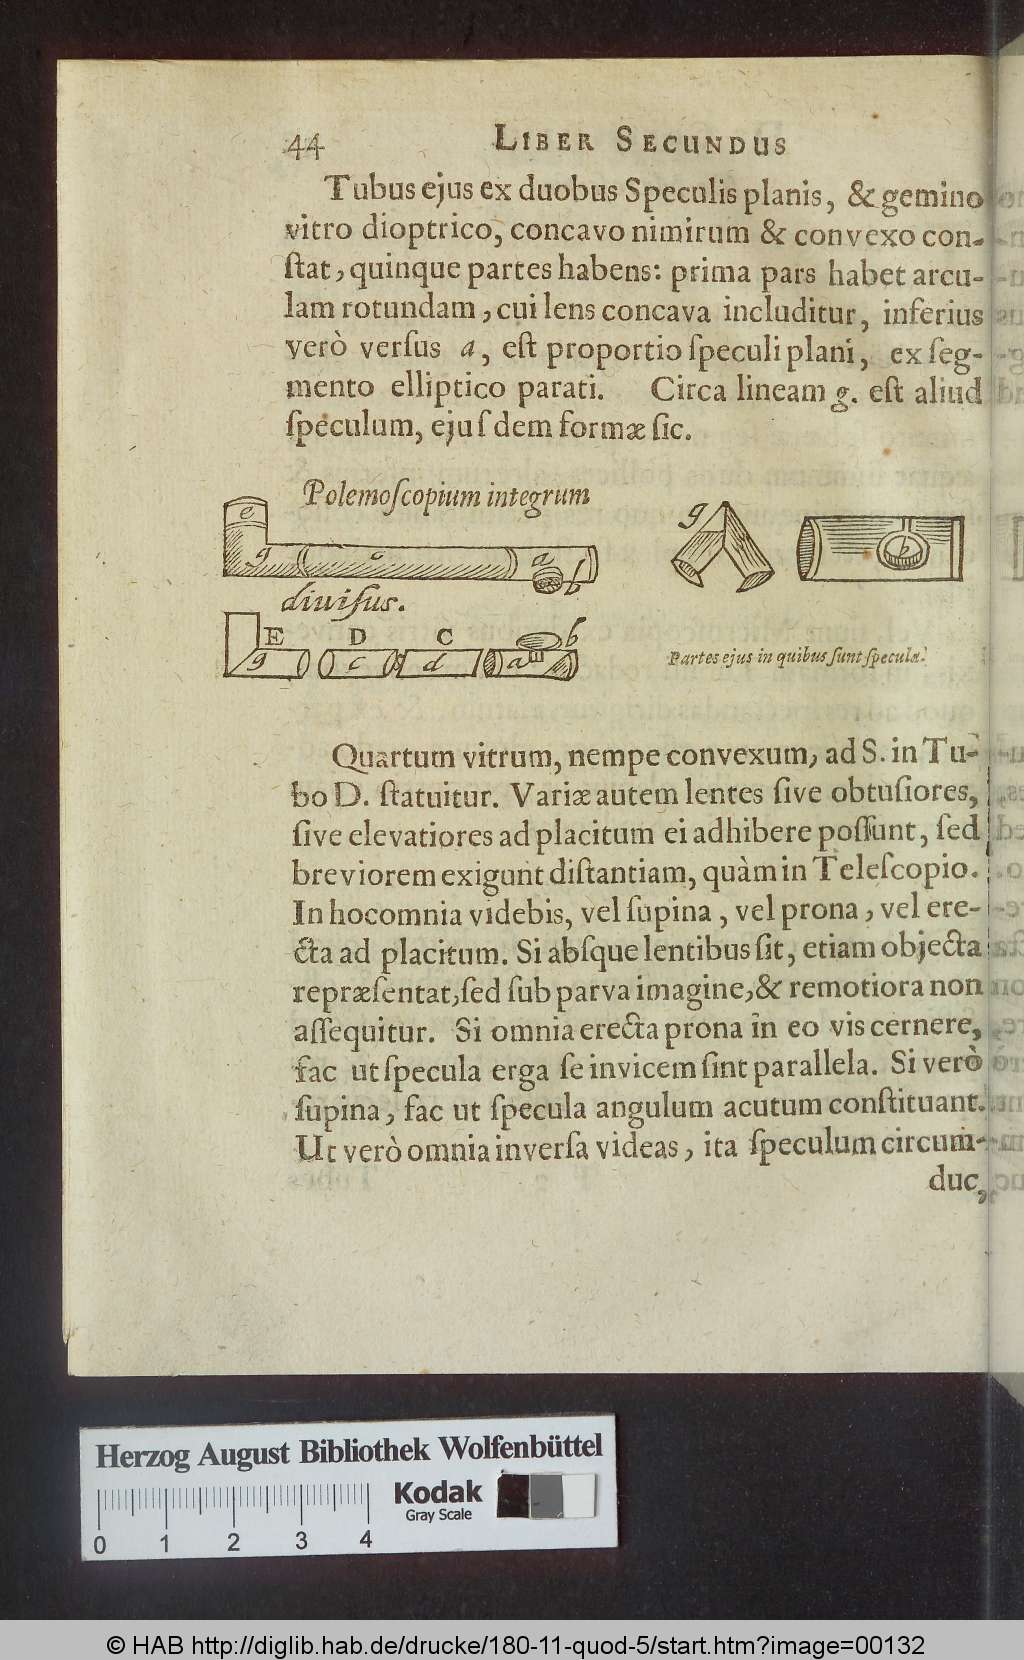 44 LIBER SECUNDUS
Tubus ejus ex duobus Speculis planis, & gemino
vitro dioptrico, concavo nimirum & convexo con-
ſtat, quinque partes habens: prima pars habet arcu-
lam rotundam, cui lens concava includitur, inferius
verò verſus a, eſt proportio ſpeculi plani, ex ſeg-
mento elliptico parati. Circa lineam g. eſt aliud
ſpeculum, ejuſdem formæ ſic.
Polemoſcopium integrum
e
g c a b
g
b
diviſus.
E D C b
g c d a
Partes ejus in quibus ſunt ſpecula.
Quartum vitrum, nempe convexum, ad S. in Tu-
bo D. ſtatuitur. Variæ autem lentes ſive obtuſiores,
ſive elevatiores ad placitum ei adhibere poſſunt, ſed
breviorem exigunt diſtantiam, quàm in Teleſcopio.
In hoc omnia videbis, vel ſupina, vel prona, vel ere-
cta ad placitum. Si abſque lentibus ſit, etiam objecta
repræſentat, ſed ſub parva imagine, & remotiora non
aſſequitur. Si omnia erecta prona in eo vis cernere,
fac ut ſpecula erga ſe invicem ſint parallela. Si verò
ſupina, fac ut ſpecula angulum acutum conſtituant.
Ut verò omnia inverſa videas, ita ſpeculum circum-
duc,
Herzog August Bibliothek Wolfenbüttel
Kodak
Gray Scale
0 1 2 3 4
© HAB http://diglib.hab.de/drucke/180-11-quod-5/start.htm?image=00132